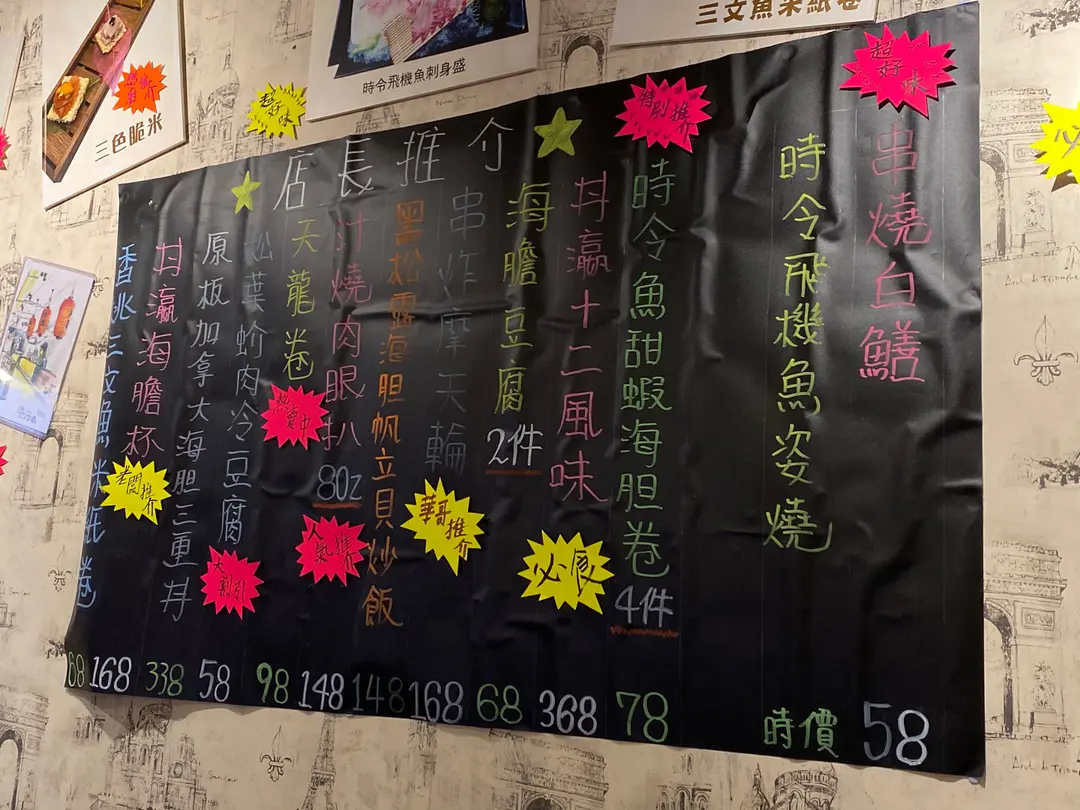 三色脆米
時令飛機魚刺身盛
三文魚米紙卷
超好味
店長推介
超好味
串燒白鱔
58
時令飛機魚姿燒
時價
特別推介
時令魚甜蝦海胆卷
4件
78
丼瀛十二風味
必食
368
海膽豆腐
2件
68
串炸摩天輪
華哥推介
168
黑松露海胆帆立貝炒飯
148
汁燒肉眼扒
8oz
人氣推介
148
天龍卷
熱賣中
98
松葉蚧肉冷豆腐
大割引
58
原板加拿大海胆三重丼
338
丼瀛海膽杯
老闆推介
168
香 三文魚米紙卷
68